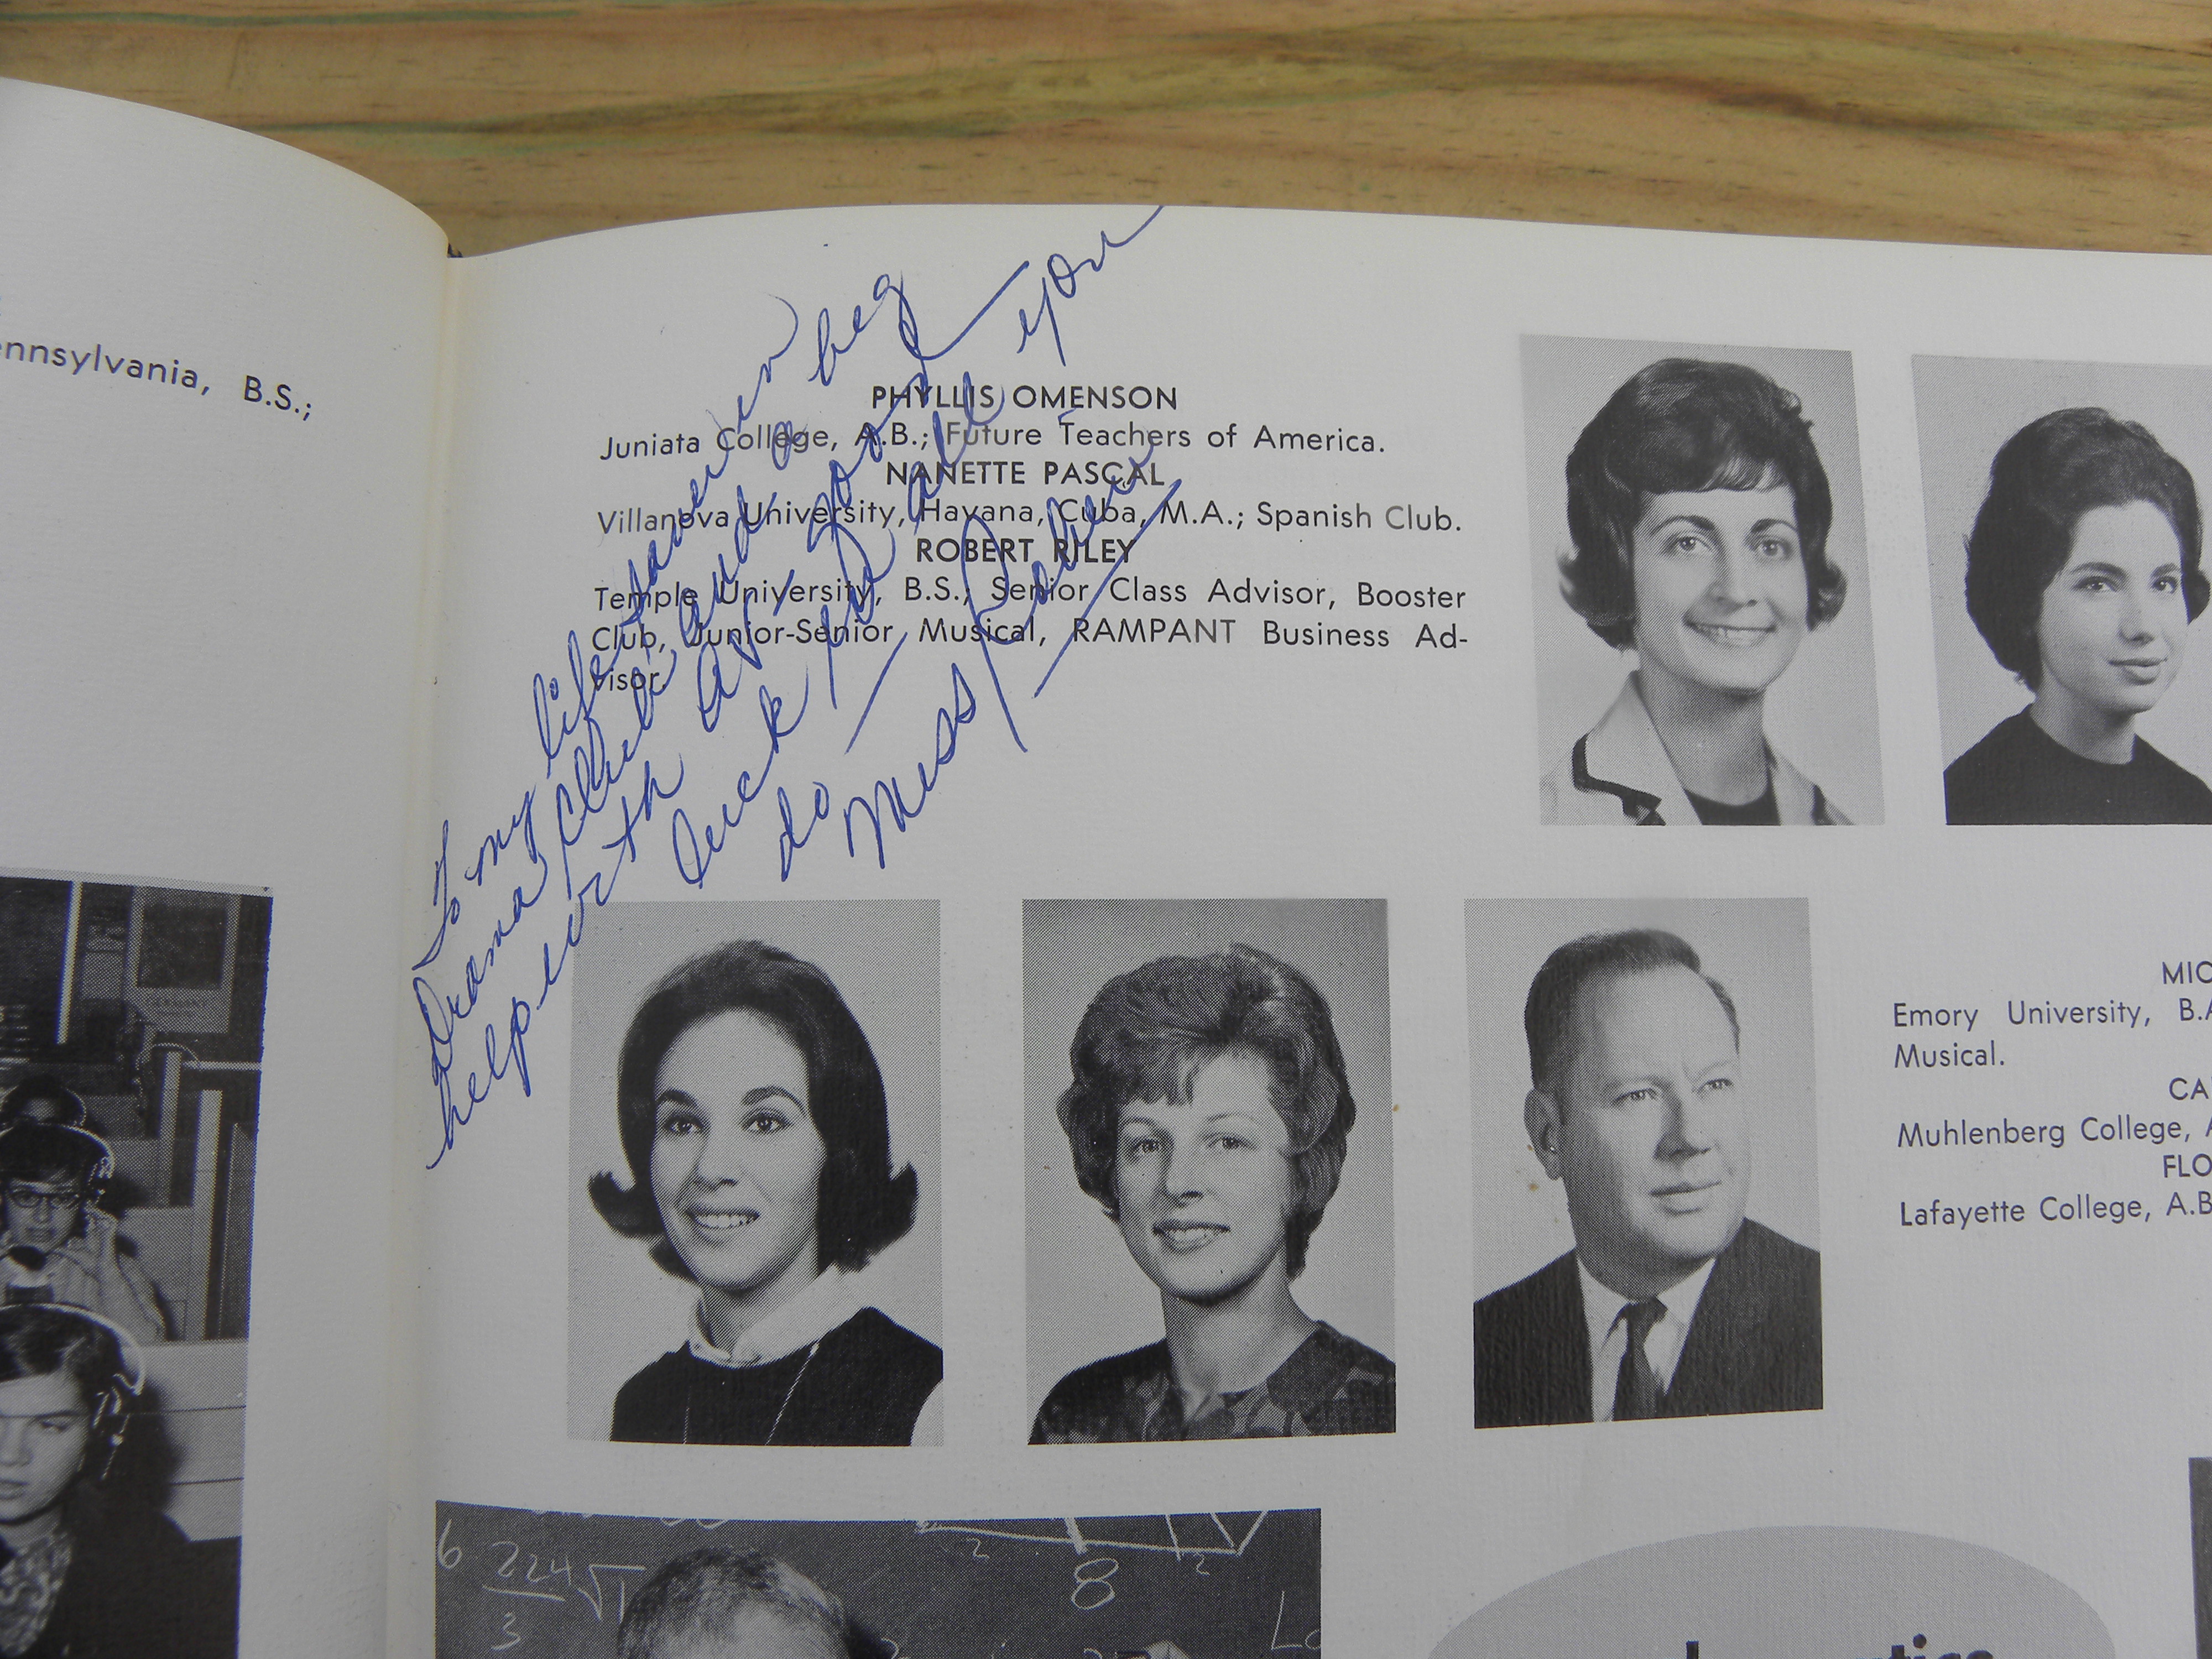 ennsylvania, B.S.;
PHYLLIS OMENSON
Juniata College, A.B.; Future Teachers of America.
NANETTE PASCAL
Villanova University, Havana, Cuba, M.A.; Spanish Club.
ROBERT RILEY
Temple University, B.S.; Senior Class Advisor, Booster
Club, Junior-Senior Musical, RAMPANT Business Ad-
visor.
To my life saver in
Drama Club and a big
help in
luck in all you
do
Miss
MIC
Emory University, B.A
Musical.
CA
Muhlenberg College, A
FLO
Lafayette College, A.B
6 224
3
2 8 2